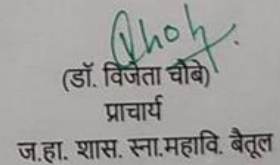 (डॉ. विजेता चौबे)
प्राचार्य
ज.हा. शास. स्ना.महावि. बैतूल